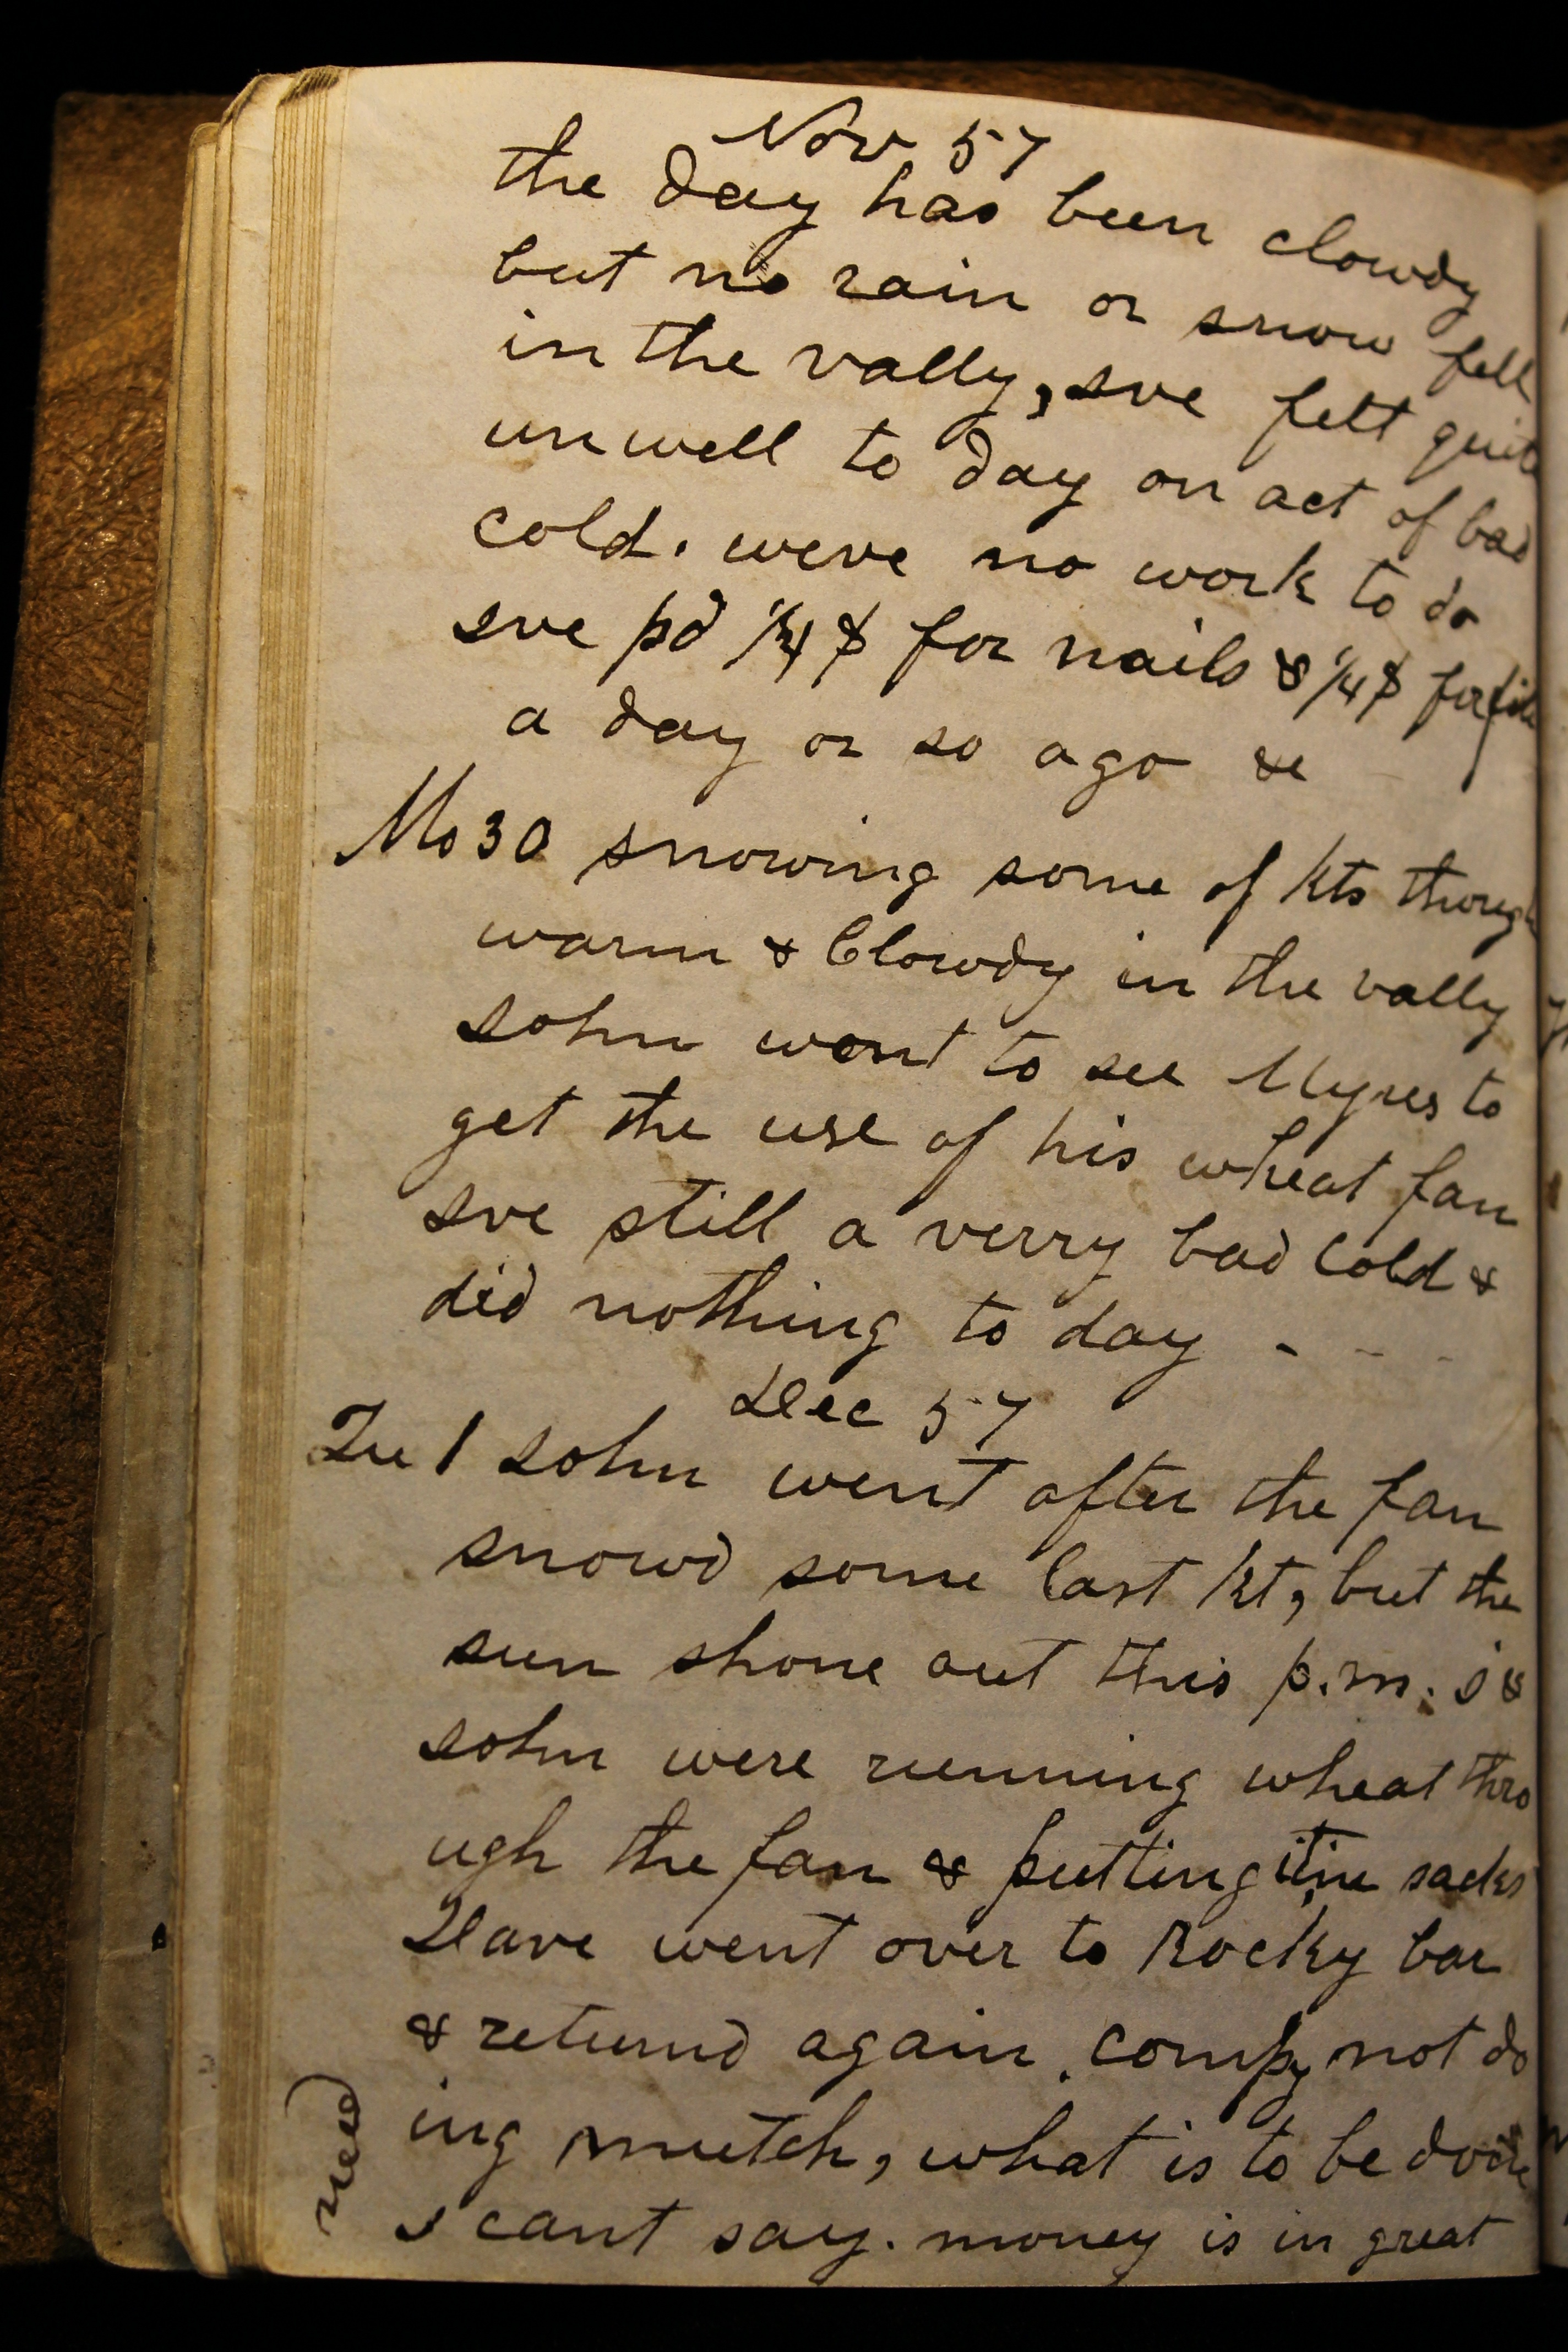 Nov 57
the day has been clowdy
but no rain or snow fell
in the vally, Ive felt quite
unwell to day on act of bad
cold. weve no work to do
Ive pd 1/4 $ for nails & 1/4 $ for
a day or so ago &c
Mo 30 snowing some of though
warm & Clowdy in the vally
John went to see Myres to
get the use of his wheat fan
Ive still a verry bad Cold &
did nothing to day - - - -
Dec 57
Tu 1 John went after the fan
snowd some last but the
sun shone out this p.m. I &
John were running wheat thro
ugh the fan & putting it in sacks
Dave went over to Rocky bar
& returnd again. compy not do
ing mutch, what is to be done
I cant say. money is in great
need